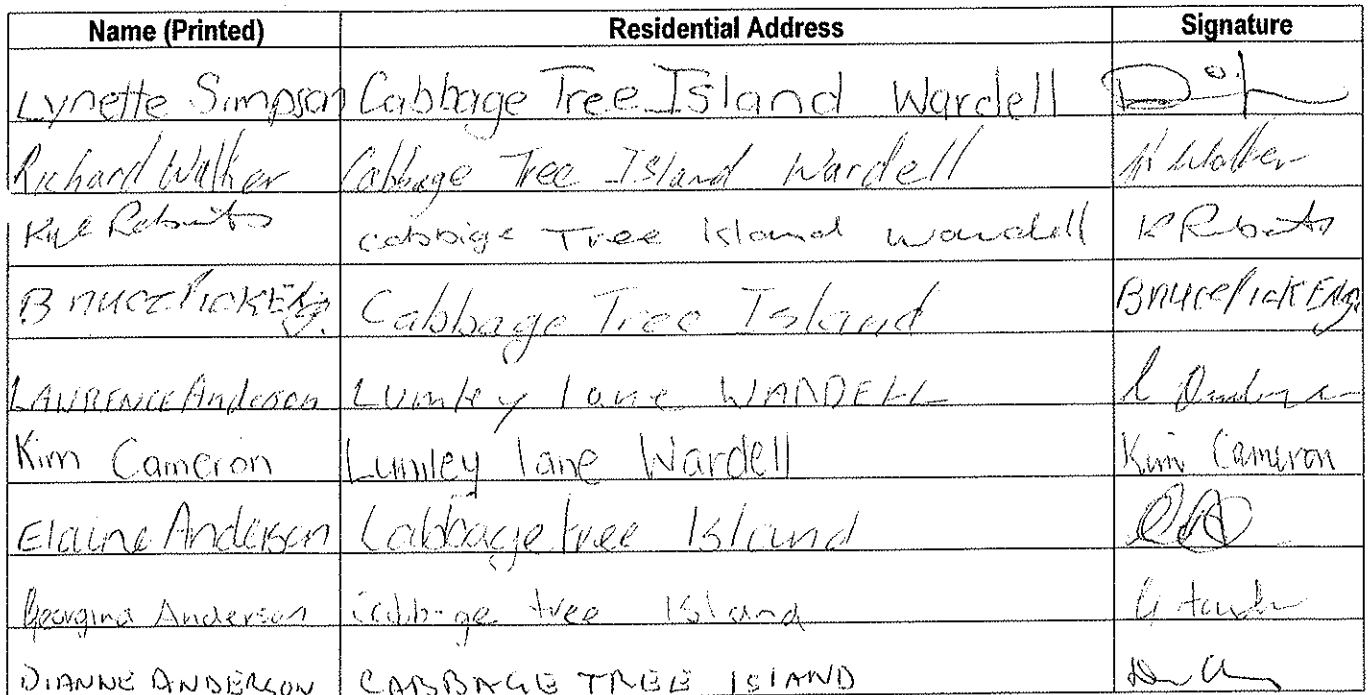 Name (Printed) Residential Address Signature
Lynette Simpson Cabbage Tree Island Wardell
Richard Walker Cabbage Tree Island Wardell R Walker
Kyle Roberts cabbige Tree Island Wardell K Roberts
BRUCE PICKERing Cabbage Tree Island BRUCE PICKERing
LAWRENCE Anderson Lumley lane WARDELL L Anderson
Kim Cameron Lumley lane Wardell Kim Cameron
Elaine Anderson Cabbage tree Island
Georgina Anderson Cabbage tree Island
DIANNE ANDERSON CABBAGE TREE ISLAND